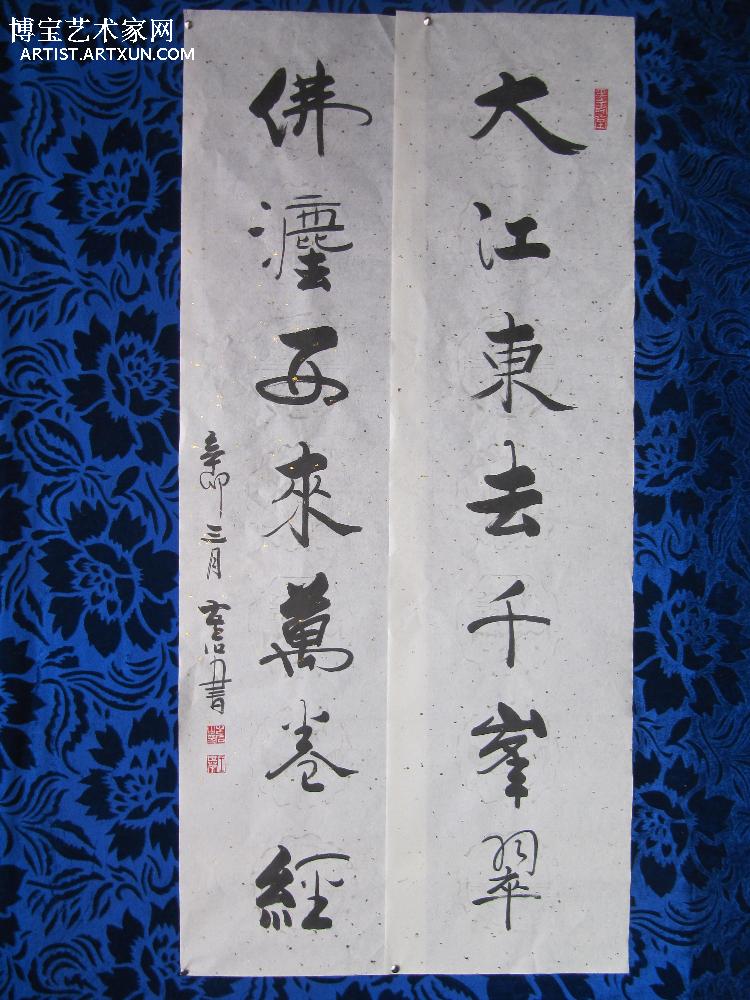 博宝艺术家网
ARTIST.ARTXUN.COM
大江東去千峯翠
佛灋西來萬卷經
辛卯三月
書